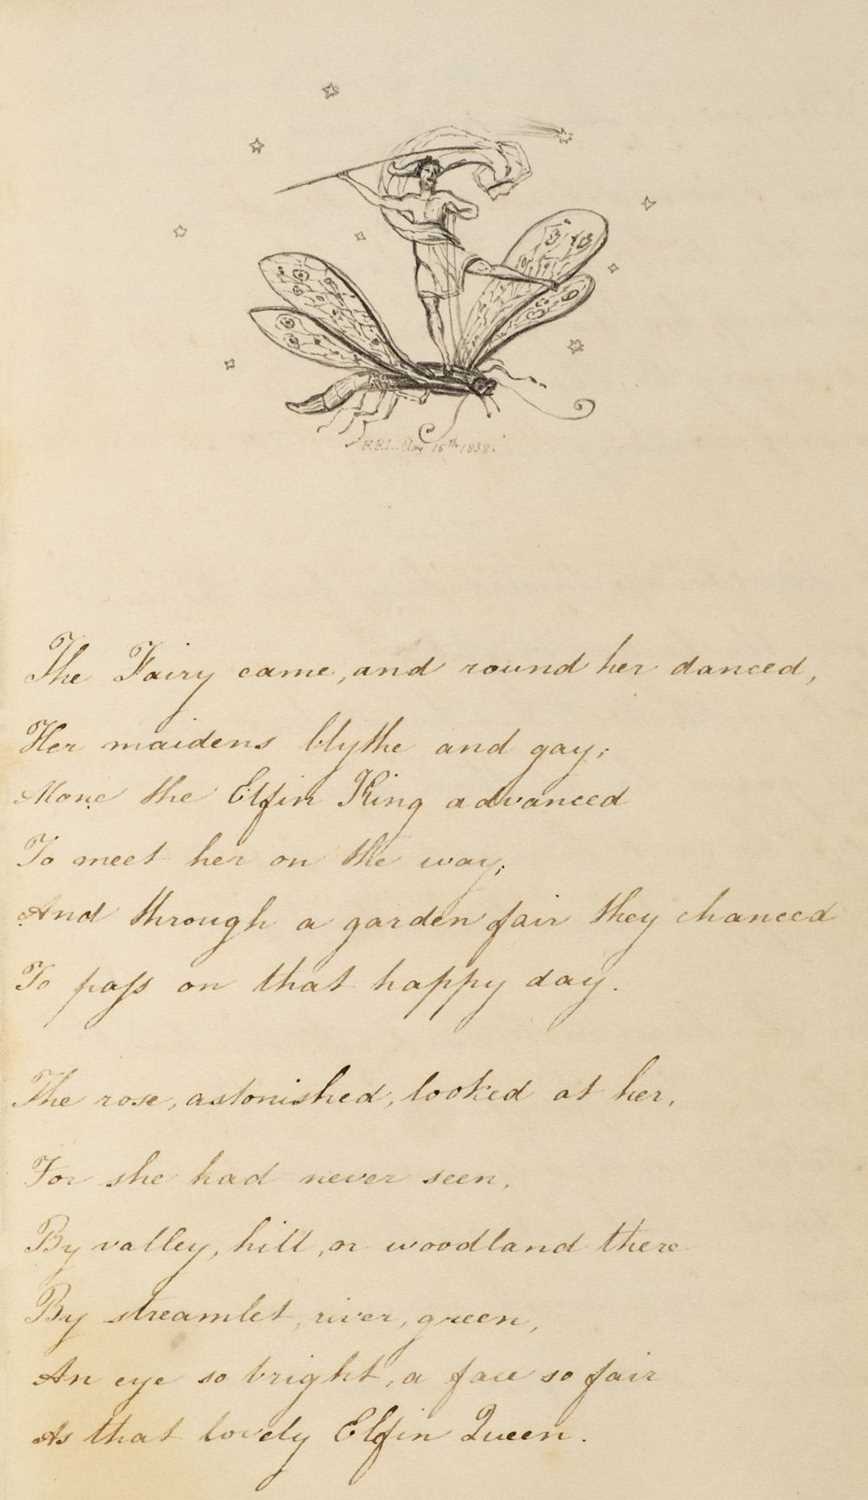 16th 1838.
The Fairy came, and round her danced,
Her maidens blythe and gay;
the Elfin King advanced
To meet her on the way;
And through a garden fair they chanced
To paſs on that happy day.
The rose, astonished, looked at her,
For she had never seen,
By valley, hill, or woodland there
By streamlet, river, green,
An eye so bright, a face so fair
As that lovely Elfin Queen.